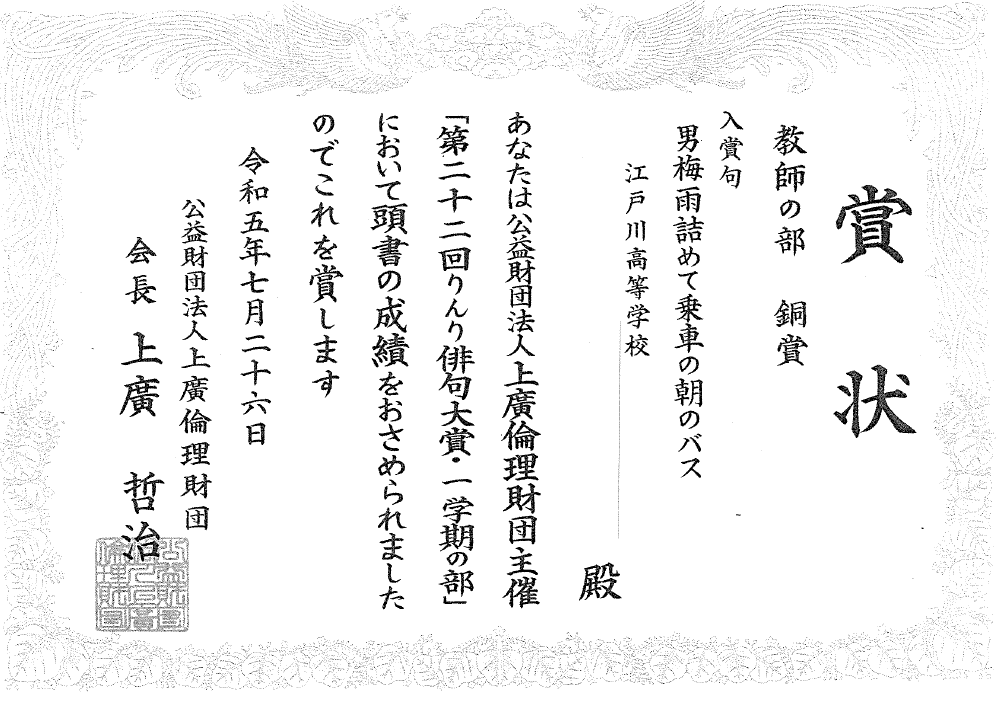 賞状
教師の部　銅賞
入賞句
男梅雨詰めて乗車の朝のバス
江戸川高等学校
殿
あなたは公益財団法人上廣倫理財団主催
「第二十二回りんり俳句大賞・一学期の部」
において頭書の成績をおさめられました
のでこれを賞します
令和五年七月二十六日
公益財団法人上廣倫理財団
会長　上廣　哲治